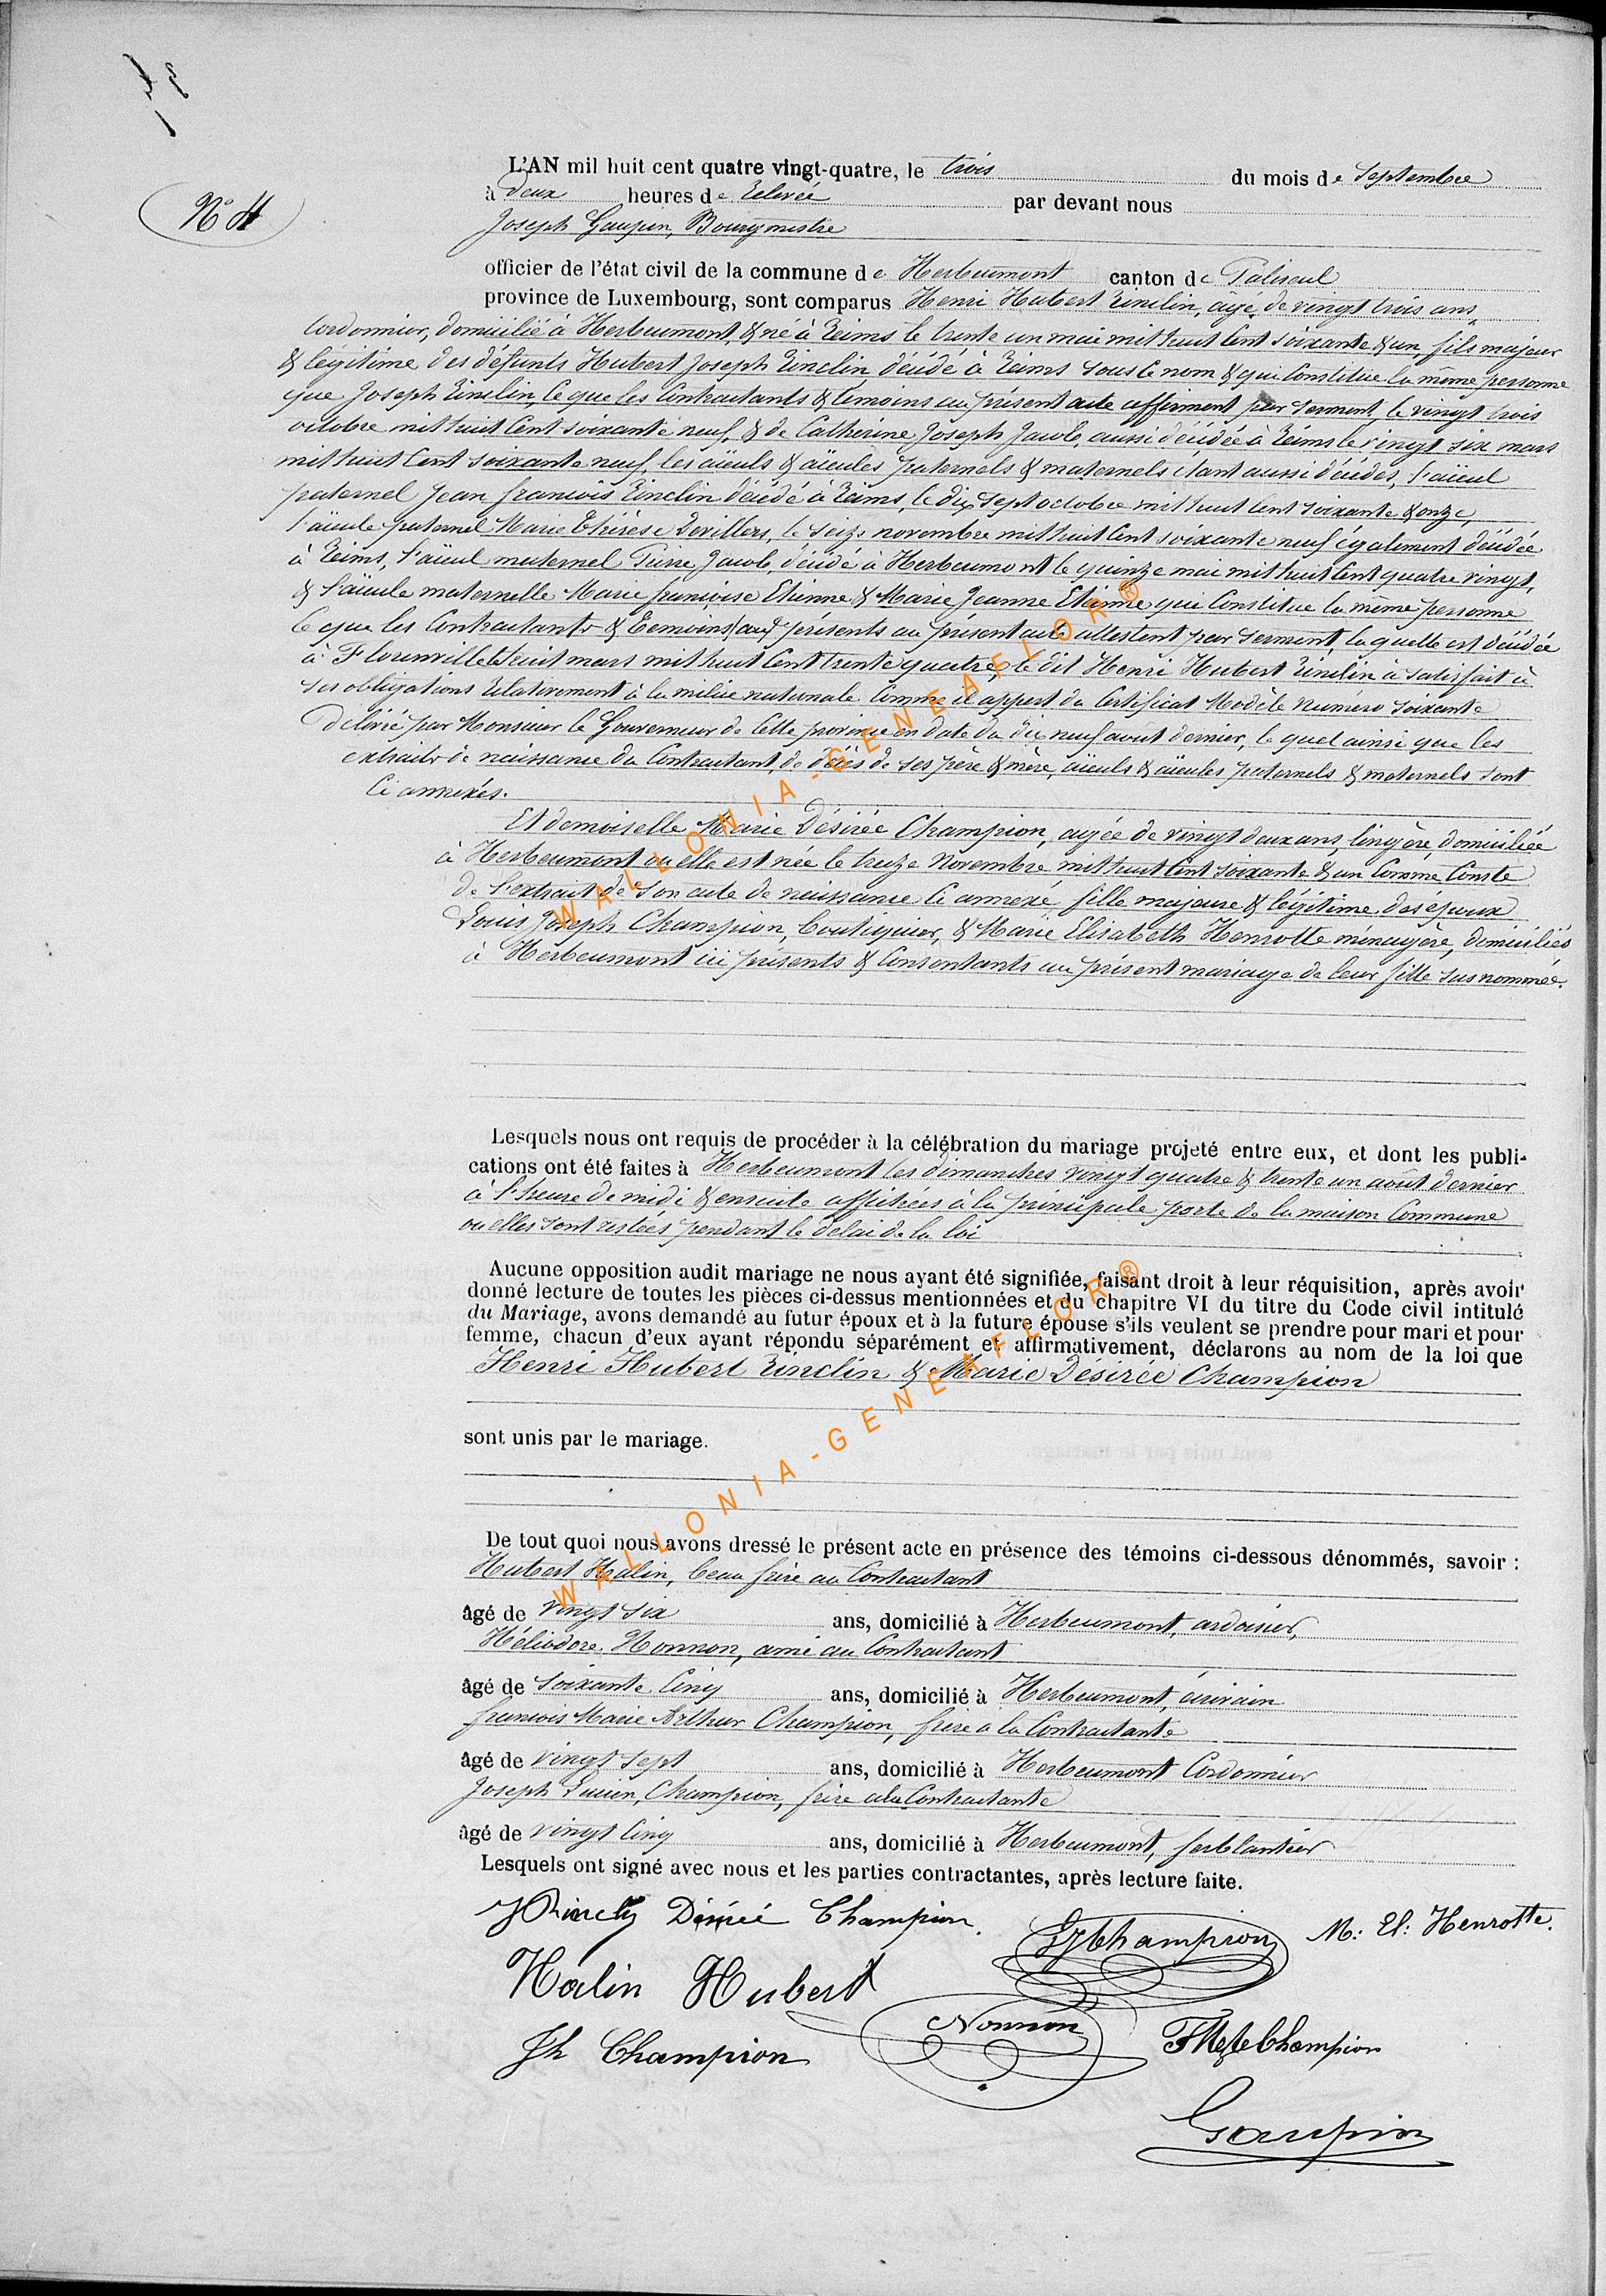 N° 4
L'AN mil huit cent quatre vingt-quatre, le trois du mois de Septembre
à Deux heures de Relevée par devant nous
Joseph Gaupin, Bourgmestre
officier de l'état civil de la commune de Herbeumont canton de Paliseul
province de Luxembourg, sont comparus Henri Hubert Rinclin, agé de vingt trois ans,
Cordonnier, domicilié à Herbeumont, & né à Reims le trente un mai mil huit Cent soixante & un, fils majeur
& légitime des défunts Hubert Joseph Rinclin décédé à Reims sous le nom & qui Constitue la même personne
que Joseph Rinclin, Ce que les Contractants & témoins au présent acte affirment par serment, le vingt trois
octobre mil huit Cent soixante neuf, & de Catherine Joseph Jacob, aussi décédée à Reims le vingt six mars
mil huit Cent soixante neuf, les aïeuls & aïeules paternels & maternels étant aussi décédés, l'aïeul
paternel Jean francois Rinclin décédé à Reims, le dix sept octobre mil huit Cent soixante & onze,
l'aïeule paternel Marie Thérèse Devillers, le seize novembre mil huit Cent soixante neuf également décédée
à Reims, l'aïeul maternel Pierre Jacob, décédé à Herbeumont le quinze mai mil huit Cent quatre vingt,
& l'aïeule maternelle Marie françoise Etienne & Marie Jeanne Etienne qui Constitue la même personne
Ce que les Contractants & Temoins présents au présent acte attestent par serment, laquelle est décédée
à Florenville le huit mars mil huit Cent trente quatre, le dit Henri Hubert Rinclin à satisfait à
ses obligations Relativement à la milice nationale Comme il appert du Certificat Modèle numéro soixante
délivré par Monsieur le Gouverneur de Cette province en date du dix neuf aout dernier, le quel ainsi que les
extraits de naissance du Contractant, de décès de ses père & mère, aïeuls & aïeules paternels & maternels sont
Ci annexés.
Et demoiselle Marie Désirée Champion, agée de vingt deux ans, lingère, domiciliée
à Herbeumont ou elle est née le treize Novembre mil huit Cent soixante & un Comme Conste
de l'extrait de son acte de naissance Ci annexé, fille majeure & légitime des époux
Louis Joseph Champion, boutiquier, & Marie Elisabeth Henrotte ménagère, domiciliés
à Herbeumont ici présents & Consentants au présent mariage de leur fille susnommée.
Lesquels nous ont requis de procéder à la célébration du mariage projeté entre eux, et dont les publi-
cations ont été faites à Herbeumont les dimanches vingt quatre & trente un août dernier
à l'heure de midi & ensuite affichées à la principale porte de la maison Commune
ou elles sont restées pendant le délai de la loi
Aucune opposition audit mariage ne nous ayant été signifiée, faisant droit à leur réquisition, après avoir
donné lecture de toutes les pièces ci-dessus mentionnées et du chapitre VI du titre du Code civil intitulé
du Mariage, avons demandé au futur époux et à la future épouse s'ils veulent se prendre pour mari et pour
femme, chacun d'eux ayant répondu séparément et affirmativement, déclarons au nom de la loi que
Henri Hubert Rinclin & Marie Désirée Champion
sont unis par le mariage.
De tout quoi nous avons dressé le présent acte en présence des témoins ci-dessous dénommés, savoir :
Hubert Halin, beau frère au Contractant
âgé de vingt six ans, domicilié à Herbeumont, ardoisier,
Héliodore Nonnon, ami au Contractant
âgé de soixante Cinq ans, domicilié à Herbeumont, écrivain
francois Marie Arthur Champion, frère a la Contractante
âgé de vingt sept ans, domicilié à Herbeumont Cordonnier
Joseph Lucien Champion, frère a la Contractante
âgé de vingt Cinq ans, domicilié à Herbeumont, ferblantier
Lesquels ont signé avec nous et les parties contractantes, après lecture faite.
Désirée Champion
LJ Champion
M: El: Henrotte.
Halin Hubert
Nonnon
Jh Champion
Champion
Gaupin
WALLONIA-GENEAFLOR®
WALLONIA-GENEAFLOR®